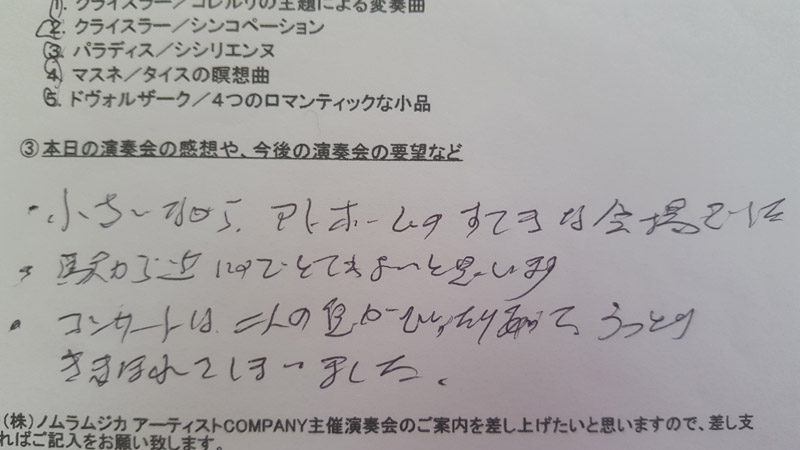 1. クライスラー／コレルリの主題による変奏曲
2. クライスラー／シンコペーション
3. パラディス／シシリエンヌ
4. マスネ／タイスの瞑想曲
5. ドヴォルザーク／4つのロマンティックな小品
③本日の演奏会の感想や、今後の演奏会の要望など
・小さいながら、アトホームのすてきな会場でした
・駅から近いのでとてもよいと思います
・コンサートは二人の息がぴったりあって、うっとり
ききほれてしまいました。
（株）ノムラムジカ アーティストCOMPANY主催演奏会のご案内を差し上げたいと思いますので、差し支
ればご記入をお願い致します。